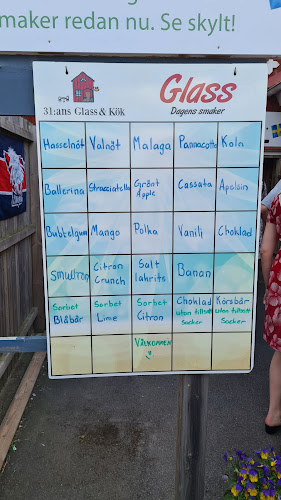 smaker redan nu. Se skylt!
31:ans Glass & Kök
Glass
Dagens smaker
Hasselnöt Valnöt Malaga Pannacotta Kola
Ballerina Stracciatella Grönt Äpple Cassata Apelsin
Bubbelgum Mango Polka Vanilj Choklad
Smultron Citron Crunch Salt lakrits Banan
Sorbet Blåbär
Sorbet Lime
Sorbet Citron
Choklad utan tillsatt Socker
Körsbär utan tillsatt Socker
VÄLKOMMEN